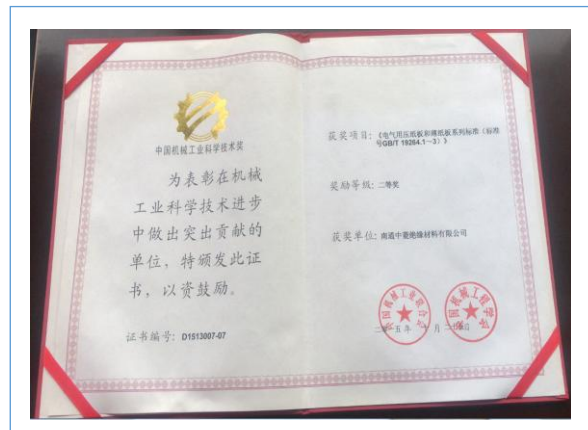 中国机械工业科学技术奖
为表彰在机械
工业科学技术进步
中做出突出贡献的
单位，特颁发此证
书，以资鼓励。
证书编号：D1513007-07
获奖项目：《电气用压纸板和薄纸板系列标准（标准
号GB/T 19264.1～3）》
奖励等级：二等奖
获奖单位：南通中菱绝缘材料有限公司
中国机械工业联合会
中国机械工程学会